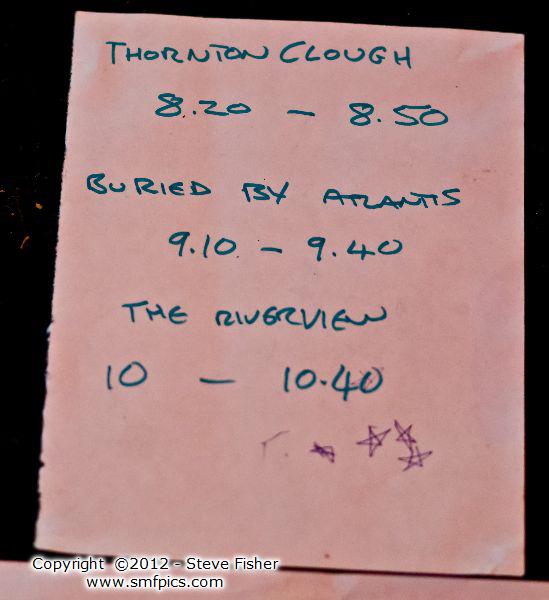 THORNTON CLOUGH
8.20 - 8.50
BURIED BY ATLANTIS
9.10 - 9.40
THE RIVERVIEW
10 - 10.40
Copyright ©2012 - Steve Fisher
www.smfpics.com